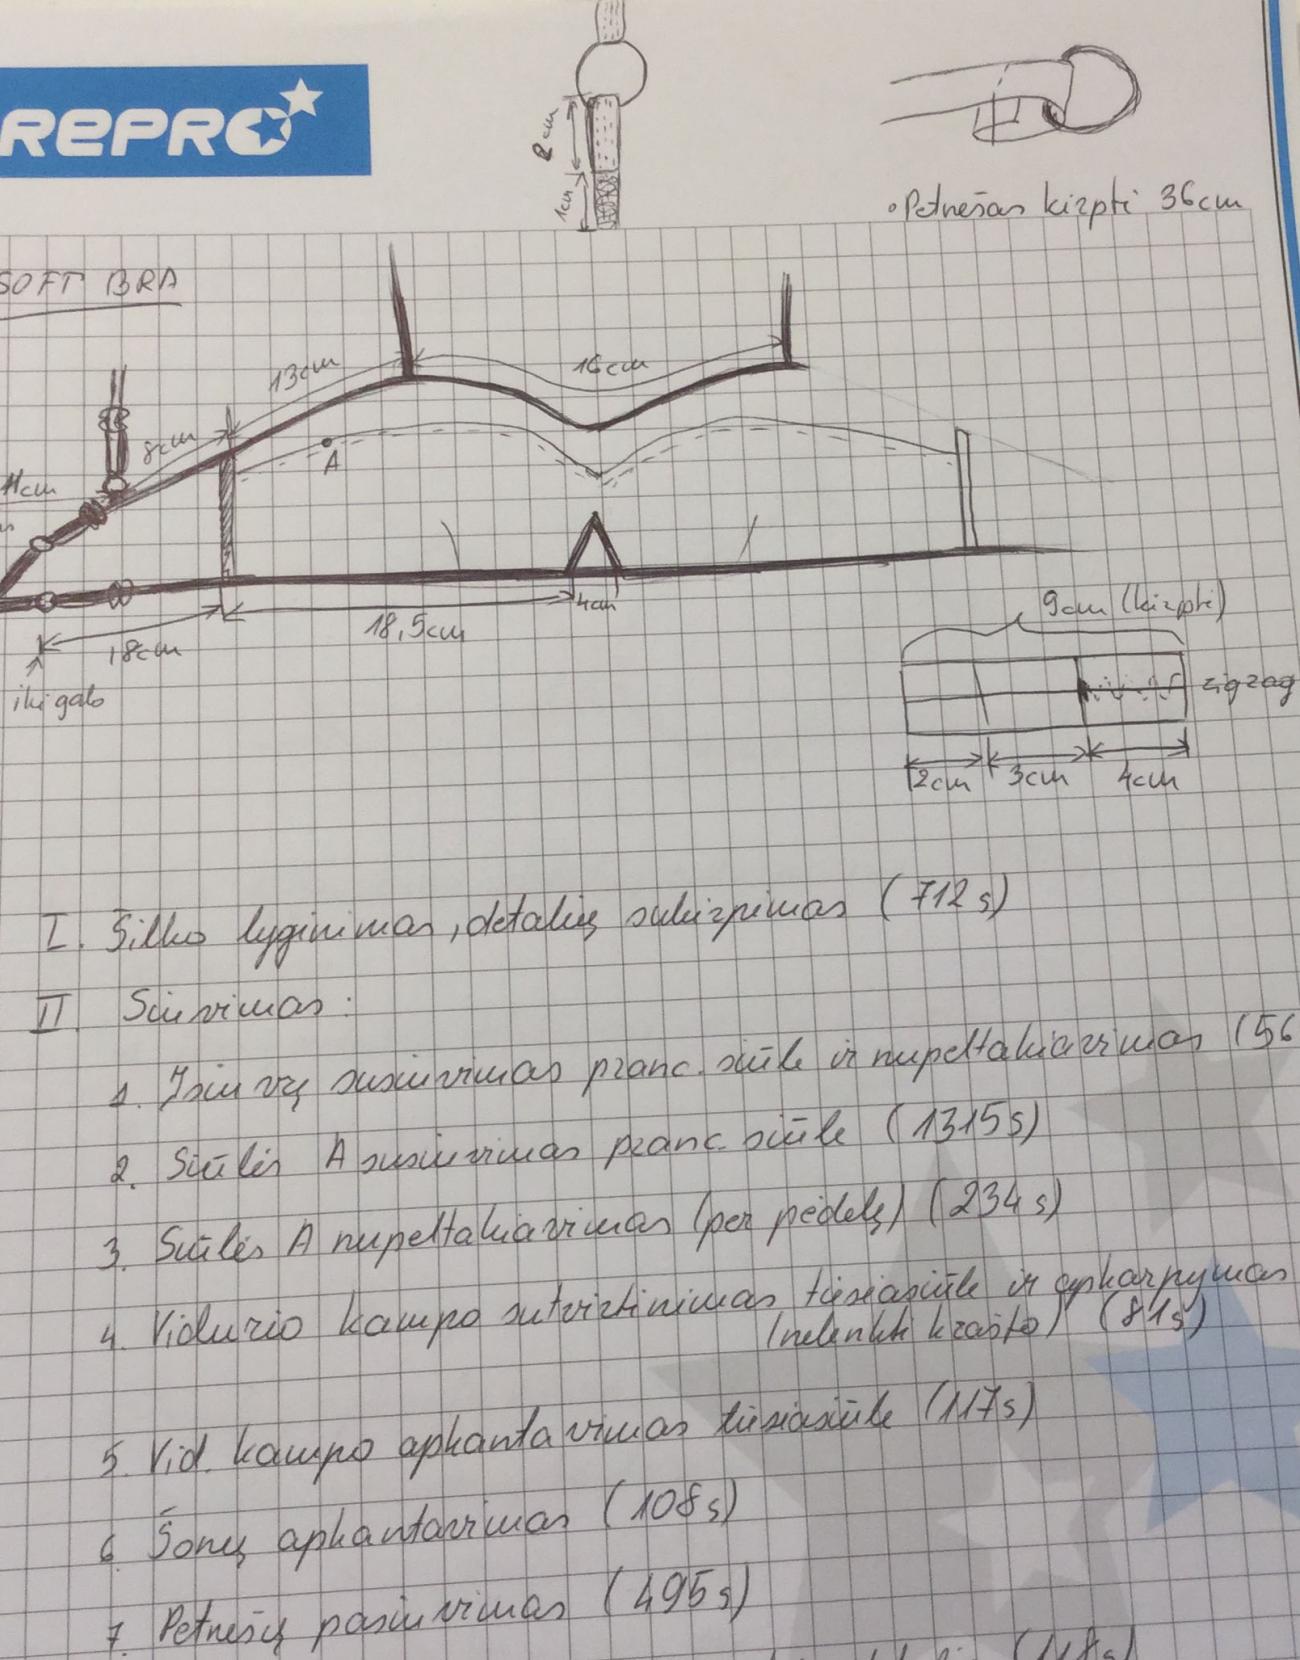 REPRO
2cm
1cm
• Petnešas kirpti 36cm
SOFT BRA
13cm
16cm
8cm
A
11cm
4cm
18,5cm
18cm
iki galo
9cm (kirpti)
zigzag
2cm 3cm 4cm
I. Šilko lyginimas, detalių sukirpimas (712 s)
II Siuvimas:
1. Įsiuvų susiuvimas pranc. siūle ir nupeltakiavimas (56
2. Siūlės A susiuvimas pranc. siūle (1315 s)
3. Siūlės A nupeltakiavimas (per pėdelę) (234 s)
4. Vidurio kampo sutvirtinimas tiesiasiūle ir apkarpymas
(nelenkti krašto) (81s)
5. Vid. kampo apkantavimas tiesiasiūle (117s)
6 Šonų apkantavimas (108s)
7 Petnešų pasiuvimas (495 s)